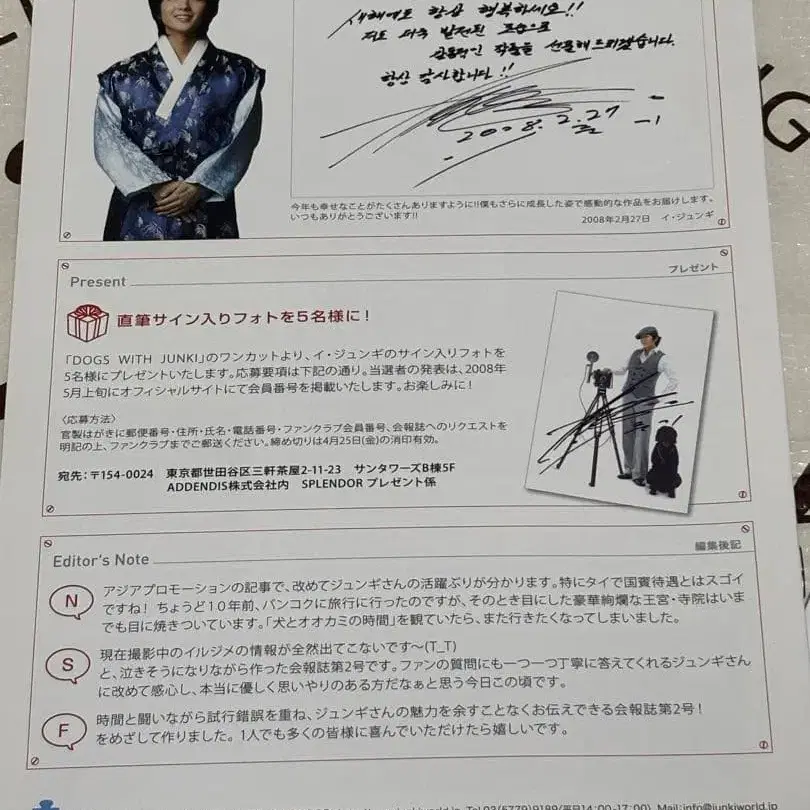 새해에도 항상 행복하세요!!
저도 더욱 발전된 모습으로
감동적인 작품을 선물해드리겠습니다.
항상 감사합니다!!
2008. 2. 27
今年も幸せなことがたくさんありますように!!僕もさらに成長した姿で感動的な作品をお届けします。
いつもありがとうございます!!
2008年2月27日 イ・ジュンギ
Present
プレゼント
直筆サイン入りフォトを5名様に!
「DOGS WITH JUNKI」のワンカットより、イ・ジュンギのサイン入りフォトを
5名様にプレゼントいたします。応募要項は下記の通り。当選者の発表は、2008年
5月上旬にオフィシャルサイトにて会員番号を掲載いたします。お楽しみに!
〈応募方法〉
官製はがきに郵便番号・住所・氏名・電話番号・ファンクラブ会員番号、会報誌へのリクエストを
明記の上、ファンクラブまでご郵送ください。締め切りは4月25日(金)の消印有効。
宛先:〒154-0024 東京都世田谷区三軒茶屋2-11-23 サンタワーズB棟5F
ADDENDIS株式会社内 SPLENDOR プレゼント係
Editor's Note
編集後記
N
アジアプロモーションの記事で、改めてジュンギさんの活躍ぶりが分かります。特にタイで国賓待遇とはスゴイ
ですね! ちょうど10年前、バンコクに旅行に行ったのですが、そのとき目にした豪華絢爛な王宮・寺院はいま
でも目に焼きついています。「犬とオオカミの時間」を観ていたら、また行きたくなってしまいました。
S
現在撮影中のイルジメの情報が全然出てこないです〜(T_T)
と、泣きそうになりながら作った会報誌第2号です。ファンの質問にも一つ一つ丁寧に答えてくれるジュンギさん
に改めて感心し、本当に優しく思いやりのある方だなぁと思う今日この頃です。
F
時間と闘いながら試行錯誤を重ね、ジュンギさんの魅力を余すことなくお伝えできる会報誌第2号!
をめざして作りました。1人でも多くの皆様に喜んでいただけたら嬉しいです。
Tel.03(5779)9189(平日14:00-17:00) Mail:info@junkiworld.jp